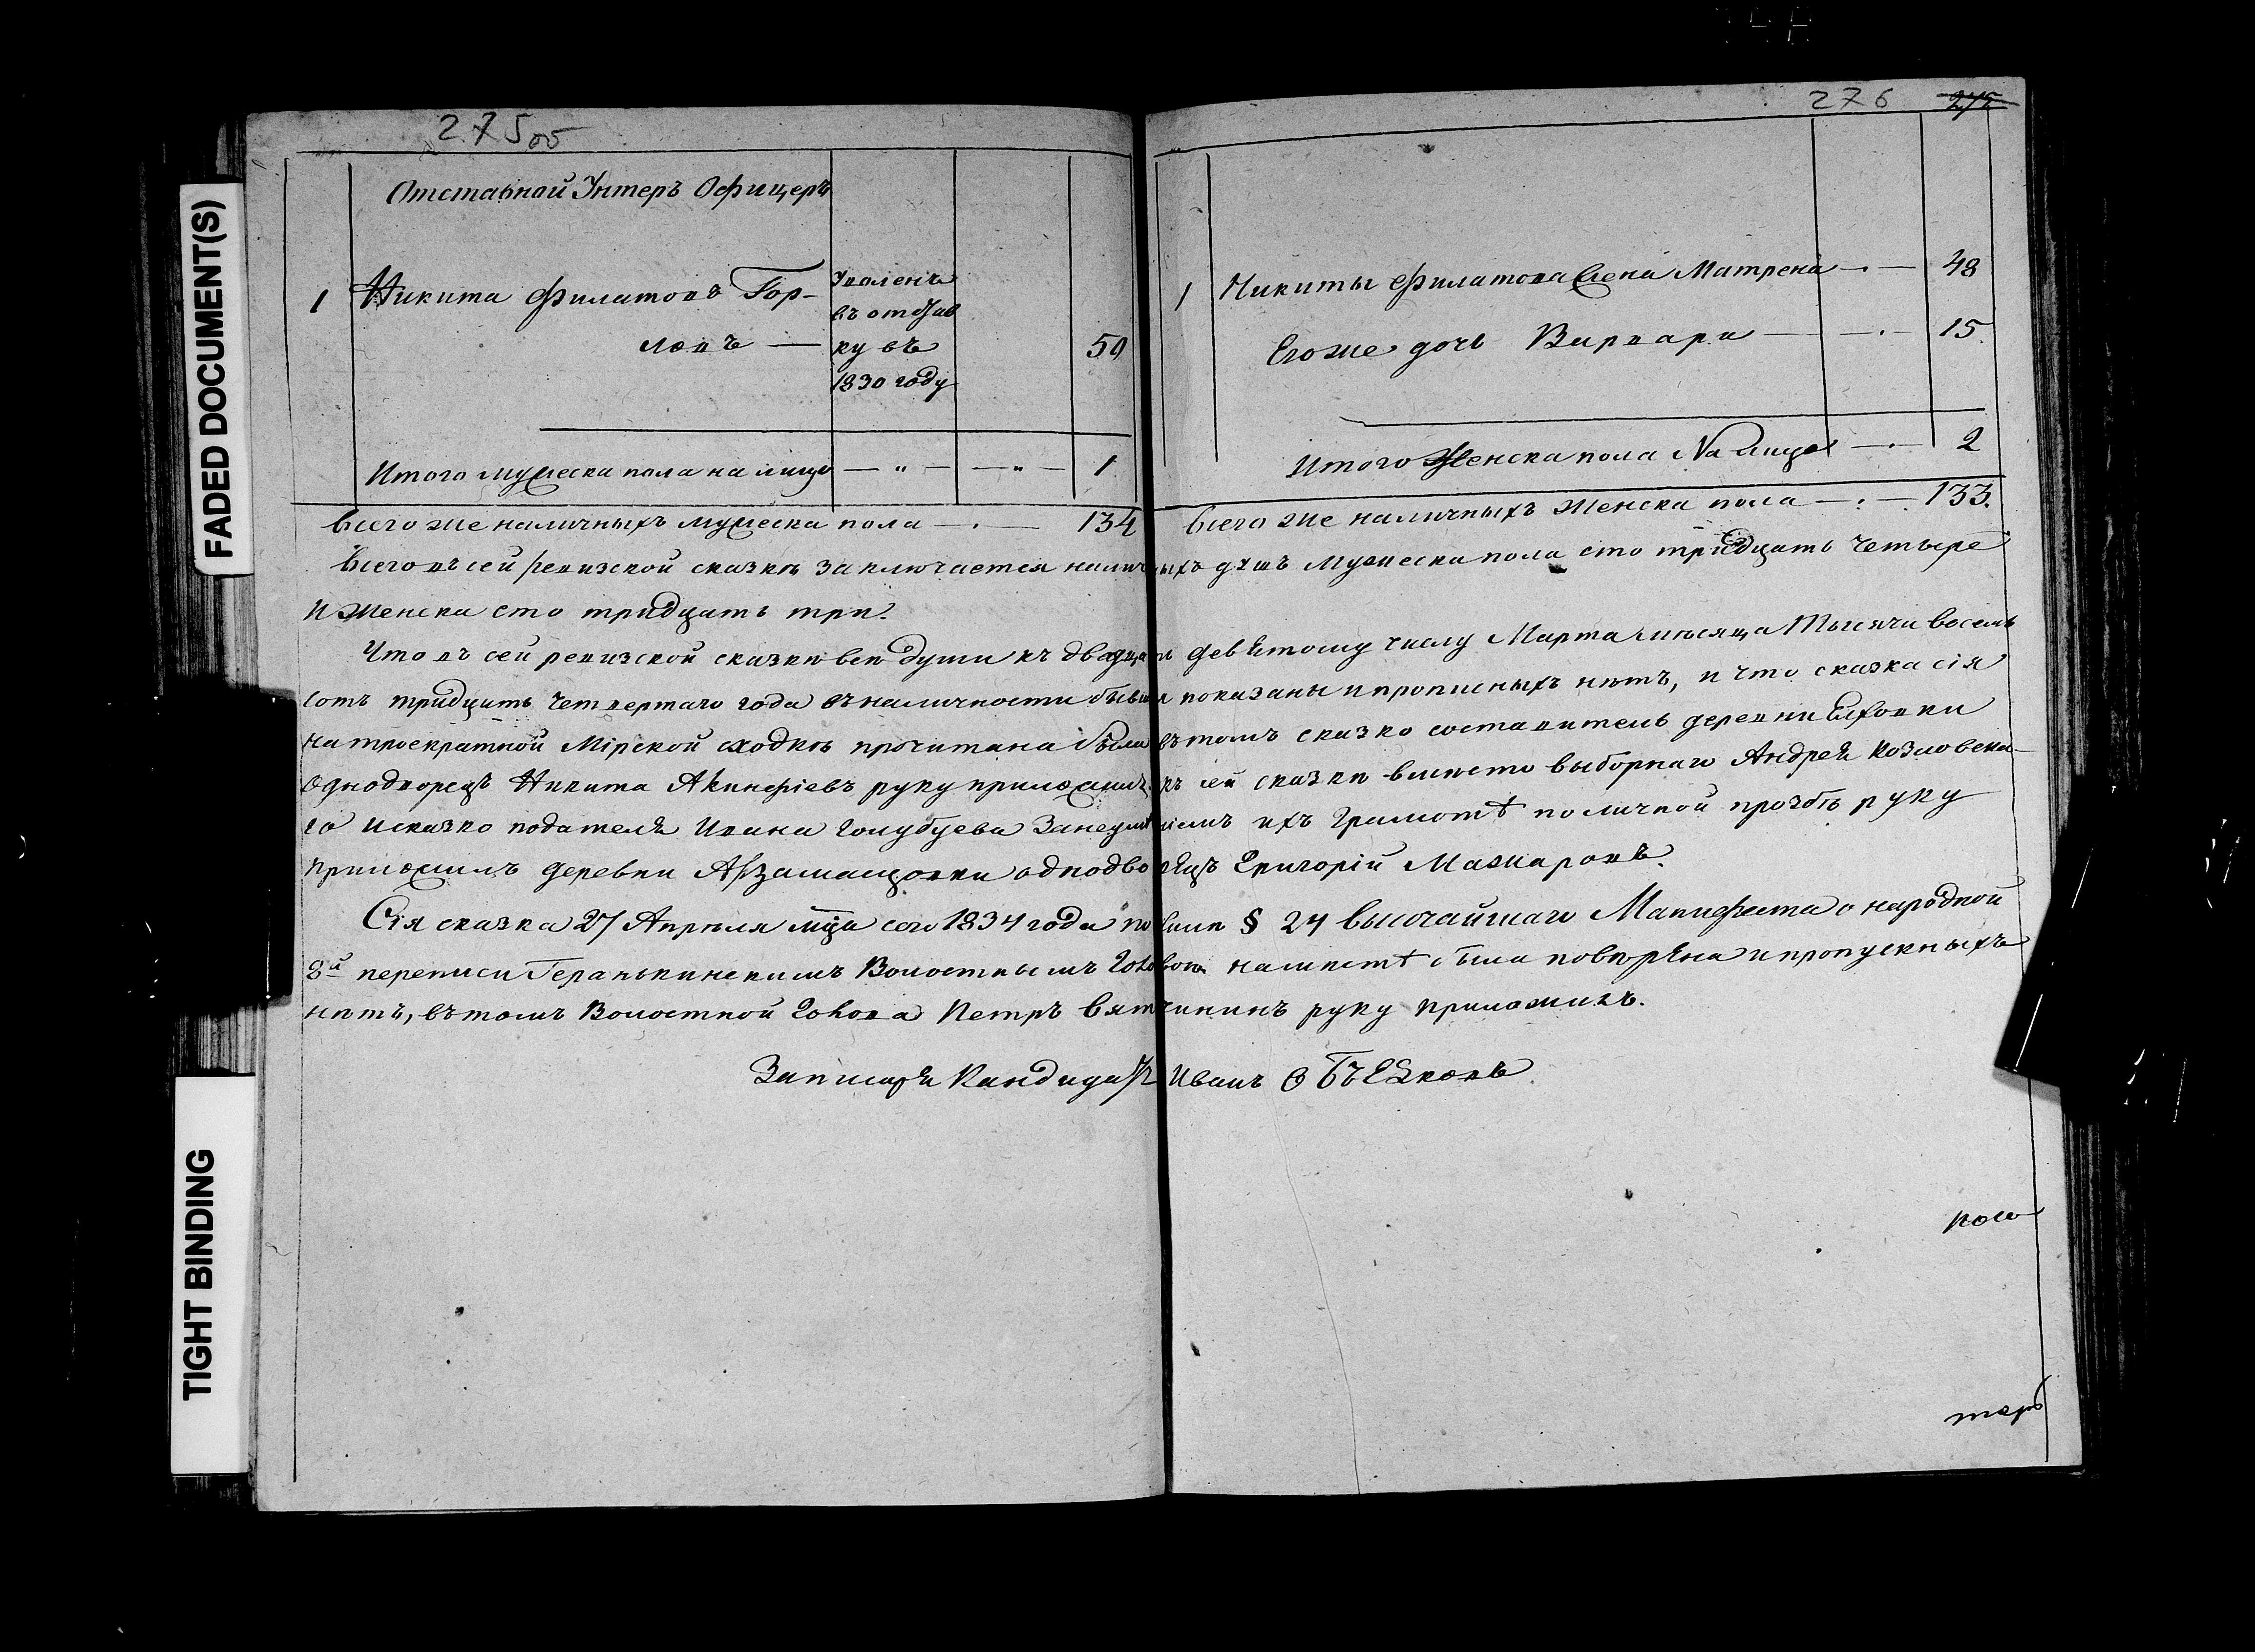 FADED DOCUMENT(S)
TIGHT BINDING
275об
Отставной Унтеръ Офицеръ
1 Никита Филатовъ Гор-
ловъ — 50
Уволенъ
въ отстав
ку въ
1830 году
Итого мужеска пола на лицо — " — — " — 1
Всего же наличныхъ мужеска пола — . — 134
276 275
1 Никиты Филатова жена Матрена — . — 48
Его же дочь Варвара — — . — 15.
Итого Женска пола На лицо — . — 2
Всего же наличныхъ женска пола — . — . 133.
Всего въ сей ревизской сказкѣ заключается наличныхъ душъ мужеска пола сто тридцать четыре
и женска сто тридцать три.
Что въ сей ревизской сказкѣ всѣ души къ двадцать девятому числу Марта мѣсяца Тысяча восемь
сотъ тридцать четвертаго года въ наличности бывшія показаны и прописныхъ нѣтъ, и что сказка сія
на троекратной Мірской сходкѣ прочитана была въ томъ сказко составитель деревни Елховки
однодворецъ Никита Акинфіевъ руку приложилъ. къ сей сказкѣ вмѣсто выборнаго Андрея Козловска-
го и сказко подателя Ивана Голубцева за неумѣніемъ ихъ Грамотѣ по личной прозбѣ руку
приложилъ деревни Арзамасцовки однодворецъ Григорій Мажаровъ.
Сія сказка 27 Апрѣля мца сего 1834 года по силѣ § 24 высочайшаго Манифеста о народной
8й переписи Геранькинскимъ Волостнымъ Головою на мѣстѣ была повѣрена и пропускныхъ
нѣтъ, въ томъ Волостной Голова Петръ Вятчининъ руку приложилъ.
За писаря Кандидатъ Иванъ Объедковъ